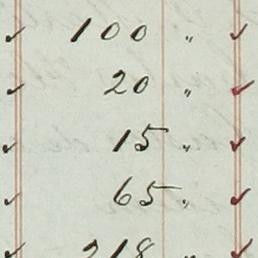 ✓ 100 " ✓
✓ 20 " ✓
✓ 15 " ✓
✓ 65 " ✓
✓ 218 " ✓